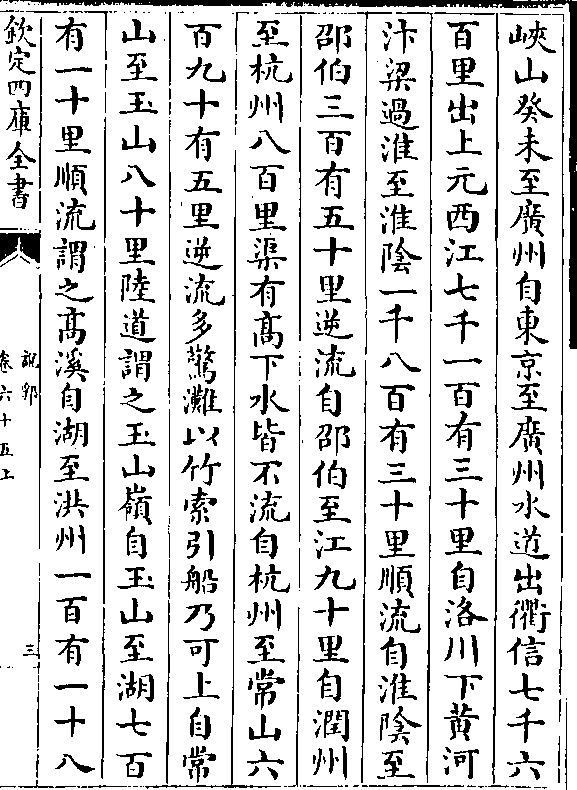 峽山癸未至廣州自東京至廣州水道出衢信七千六
百里出上元西江七千一百有三十里自洛川下黄河
汴梁過淮至淮陰一千八百有三十里順流自淮陰至
邵伯三百有五十里逆流自邵伯至江九十里自潤州
至杭州八百里渠有髙下水皆不流自杭州至常山六
百九十有五里逆流多驚灘以竹索引船乃可上自常
山至玉山八十里陸道謂之玉山嶺自玉山至湖七百
有一十里順流謂之髙溪自湖至洪州一百有一十八
欽定四庫全書
說郛
卷六十五上
三